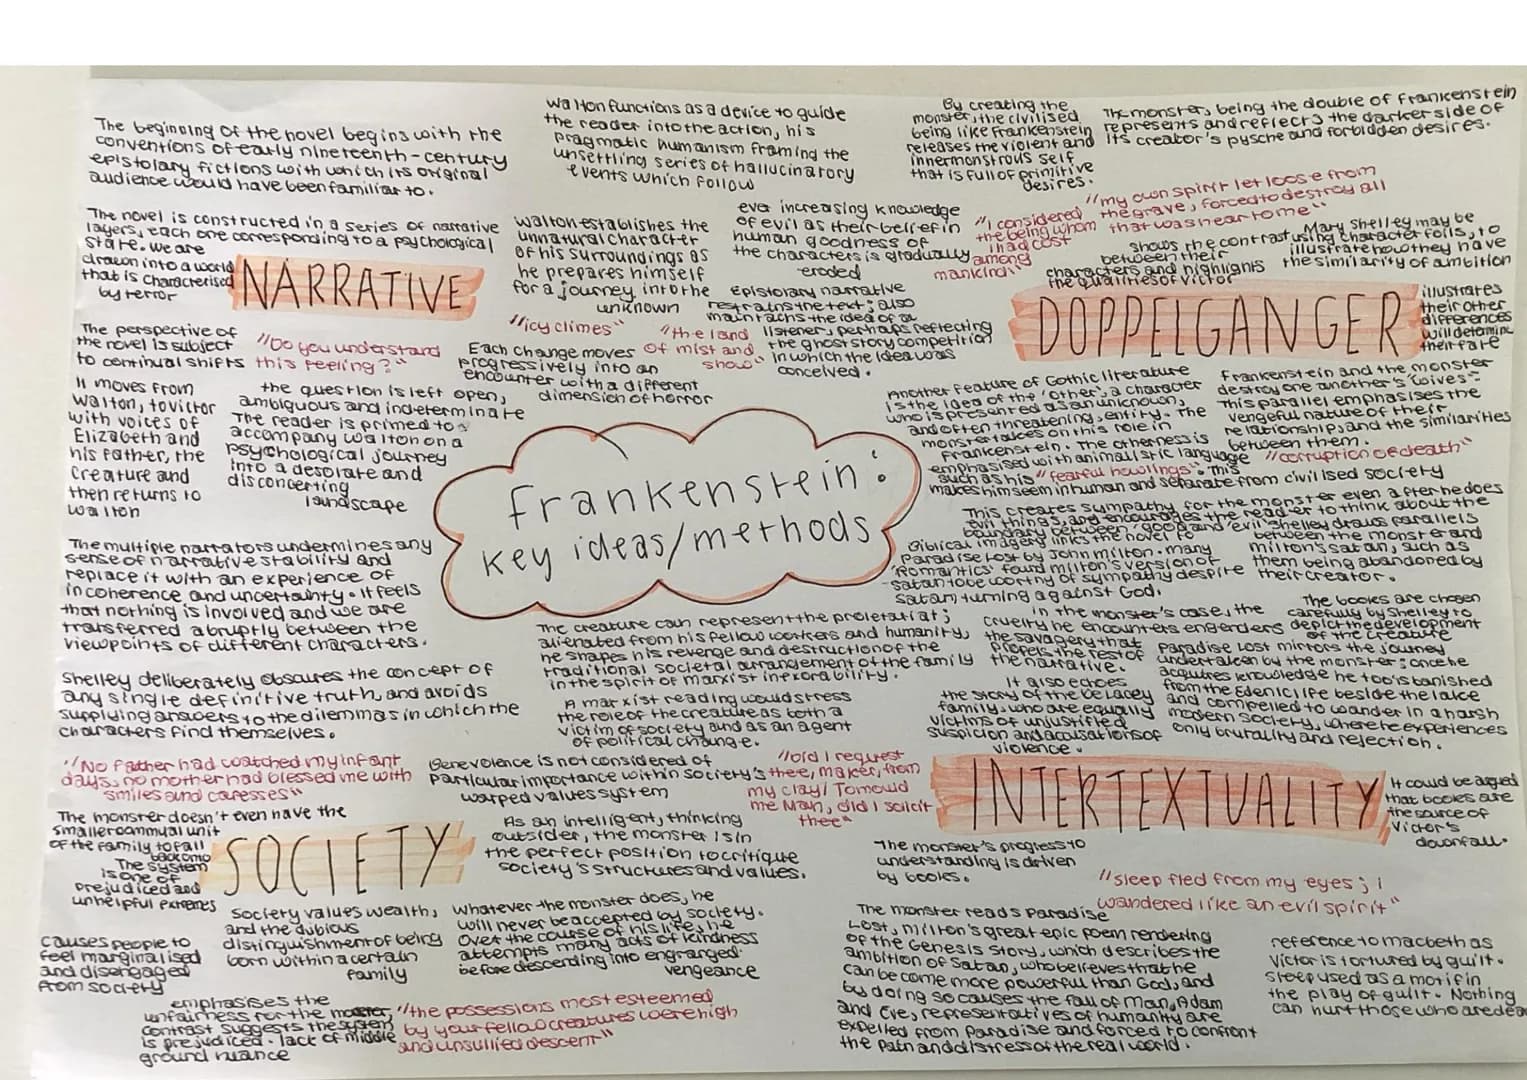 The beginning of the novel begins with the
conventions of early nineteenth-century
epistolary fictions with which its original
audience would have been familiar to.
The novel is constructed in a series of narrative
layers, each one corresponding to a psychological
state. We are
drawn into a world
that is characterised
by terror
NARRATIVE
The perspective of
the novel is subject
to continual shifts
"Do you understand
this feeling?"
It moves from
Walton, to victor
with voices of
Elizabeth and
his father, the
creature and
then returns to
walton
the question is left open,
ambiguous and indeterminate
The reader is primed to
accompany walton on a
psychological journey
into a desolate and
disconcerting
landscape
The multiple narrators undermines any
sense of narrative stability and
replace it with an experience of
incoherence and uncertainty. It feels
that nothing is involved and we are
transferred abruptly between the
viewpoints of different characters.
Shelley deliberately obscures the concept of
any single definitive truth, and avoids
supplying answers to the dilemmas in which the
characters find themselves.
Walton functions as a device to guide
the reader into the action, his
pragmatic humanism framing the
unsettling series of hallucinatory
events which follow
Walton establishes the
unnatural character
of his surroundings as
he prepares himself
for a journey into the
unknown
"icy climes"
"the land
of mist and
show"
Each change moves
progressively into an
encounter with a different
dimension of horror
ever increasing knowledge
of evil as their belief in
human goodness of
the characters is gradually
eroded
Epistolary narrative
restrains the text; also
maintains the idea of a
listener, perhaps reflecting
the ghost story competition
in which the idea was
conceived.
Frankenstein:
key ideas/methods
By creating the
monster, the civilised
being like Frankenstein
releases the violent and
inner monstrous self
that is full of primitive
desires.
The monster, being the double of Frankenstein
represents and reflects the darker side of
its creator's pysche and forbidden desires.
"I considered
the being whom
I had cast
among
mankind"
"my own spirit let loose from
the grave, forced to destroy all
that was near to me"
shows the contrast
between their
characters and highlights
the qualities of victor
Mary Shelley may be
using character foils, to
illustrate how they have
the similarity of ambition
DOPPELGANGER
illustrates
their other
differences
will determine
their fate
Another feature of Gothic literature
is the idea of the 'other', a character
who is presented as an unknown,
and often threatening, entity. The
monster takes on this role in
Frankenstein. The otherness is
emphasised with animalistic language
such as his "fearful howlings". This
makes him seem inhuman and separate from civilised society
Frankenstein and the monster
destroy one another's 'wives'-
This parallel emphasises the
vengeful nature of their
relationship, and the similarities
between them.
"corruption of death"
This creates sympathy for the monster even after he does
evil things, and encourages the reader to think about the
boundary between 'good' and 'evil'
Biblical imagery links the novel to
Paradise Lost by John Milton. Many
'Romantics' found Milton's version of
satan to be worthy of sympathy despite
satan turning against God.
Shelley draws parallels
between the monster and
Milton's satan, such as
them being abandoned by
their creator.
The creature can represent the proletariat;
alienated from his fellow workers and humanity,
he shapes his revenge and destruction of the
traditional societal arrangement of the family
in the spirit of marxist inexorability.
A marxist reading would stress
the role of the creature as both a
victim of society and as an agent
of political change.
In the monster's case, the
cruelty he encounters engenders
the savagery that
propels the rest of
the narrative.
It also echoes
the story of the De Lacey
family, who are equally
victims of unjustified
suspicion and accusations of
violence.
The books are chosen
carefully by Shelley to
depict the development
of the creature
Paradise Lost mirrors the journey
undertaken by the monster; once he
acquires knowledge he too is banished
from the Edenic life beside the lake
and compelled to wander in a harsh
modern society, where he experiences
only brutality and rejection.
"No father had watched my infant
days, no mother had blessed me with
smiles and caresses"
Benevolence is not considered of
particular importance within society's
warped values system
"Did I request
thee, maker, from
my clay/To mould
me Man, did I solicit
thee"
INTERTEXTUALITY
It could be argued
that books are
the source of
Victor's
downfall.
The monster doesn't even have the
smaller communal unit
of the family to fall
back onto
The system
is one of
prejudiced and
unhelpful extremes
SOCIETY
As an intelligent, thinking
outsider, the monster is in
the perfect position to critique
society's structures and values.
causes people to
feel marginalised
and disengaged
from society
Society values wealth,
and the dubious
distinguishment of being
born within a certain
family
Whatever the monster does, he
will never be accepted by society.
Over the course of his life, he
attempts many acts of kindness
before descending into engranged
vengeance
emphasises the
unfairness for the monster,
contrast suggests the system
is prejudiced. lack of middle
ground nuance
"the possessions most esteemed
by your fellow creatures were high
and unsullied descent"
The monster's progress to
understanding is driven
by books.
"sleep fled from my eyes; I
wandered like an evil spirit"
The monster reads Paradise
Lost, Milton's great epic poem rendering
of the Genesis story, which describes the
ambition of Satan, who believes that he
can be come more powerful than God, and
by doing so causes the fall of Man, Adam
and Eve, representatives of humanity are
expelled from paradise and forced to confront
the pain and distress of the real world.
reference to macbeth as
Victor is tortured by guilt.
Sleep used as a motif in
the play of guilt. Nothing
can hurt those who are dea